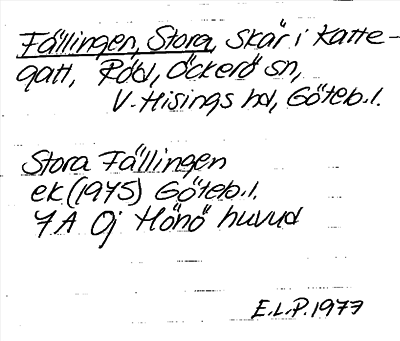 Fällingen, Stora, skär i Katte-
gatt, Röd, Öckerö sn,
V. Hisings hd, Göteb.l.
Stora Fällingen
ek (1975) Göteb.l.
7A Oj Hönö huvud
E.L.P. 1977